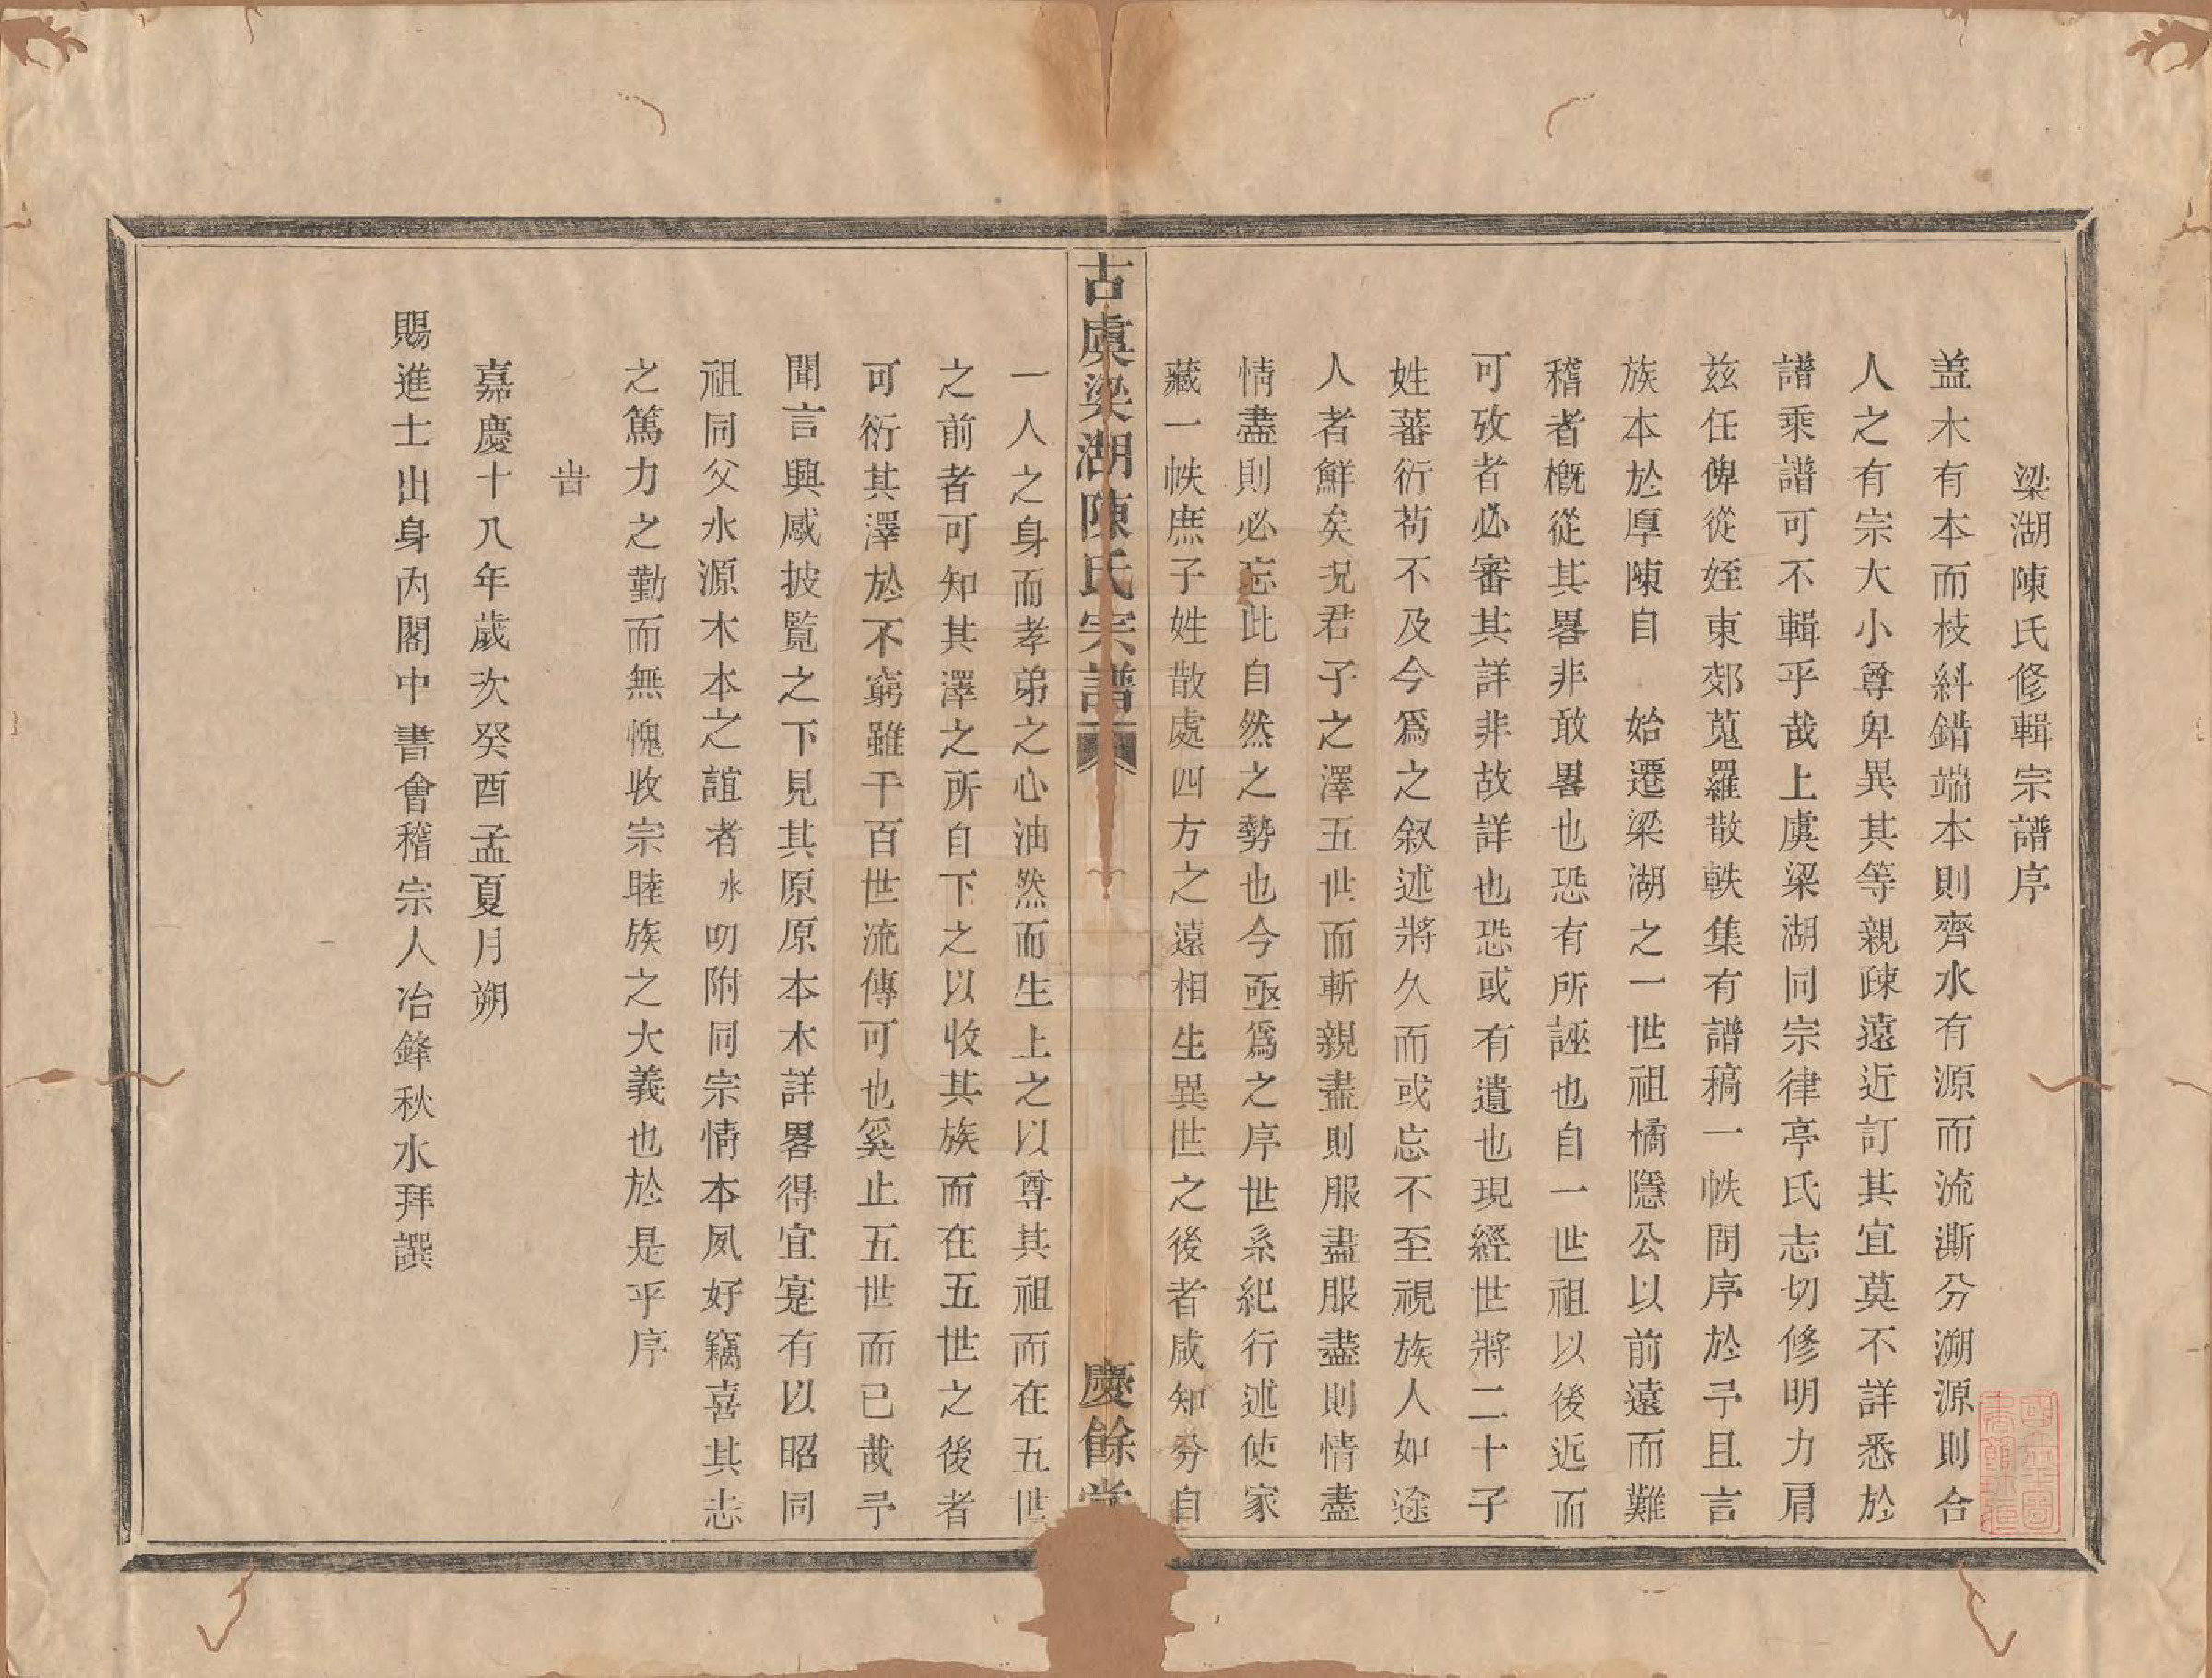 梁湖陳氏修輯宗譜序
蓋木有本而枝糾錯端本則齊水有源而流澌分溯源則合
人之有宗大小尊卑異其等親疎遠近訂其宜莫不詳悉於
譜乘譜可不輯乎哉上虞梁湖同宗律亭氏志切修明力肩
茲任俾從姪東郊蒐羅散軼集有譜稿一帙問序於予且言
族本於厚陳自 始遷梁湖之一世祖橘隱公以前遠而難
稽者槪從其畧非敢畧也恐有所誣也自一世祖以後近而
可攷者必審其詳非故詳也恐或有遺也現經世將二十子
姓蕃衍苟不及今爲之叙述將久而或忘不至視族人如途
人者鮮矣況君子之澤五世而斬親盡則服盡服盡則情盡
情盡則必忘此自然之勢也今亟爲之序世系紀行述使家
藏一帙庶子姓散處四方之遠相生異世之後者咸知分自
古虞梁湖陳氏宗譜
慶餘堂
一人之身而孝弟之心油然而生上之以尊其祖而在五世
之前者可知其澤之所自下之以收其族而在五世之後者
可衍其澤於不窮雖千百世流傳可也奚止五世而已哉予
聞言興感披覽之下見其原原本本詳畧得宜寔有以昭同
祖同父水源木本之誼者水叨附同宗情本夙好竊喜其志
之篤力之勤而無愧收宗睦族之大義也於是乎序
旹
嘉慶十八年歲次癸酉孟夏月朔
賜進士出身內閣中書會稽宗人冶鋒秋水拜譔